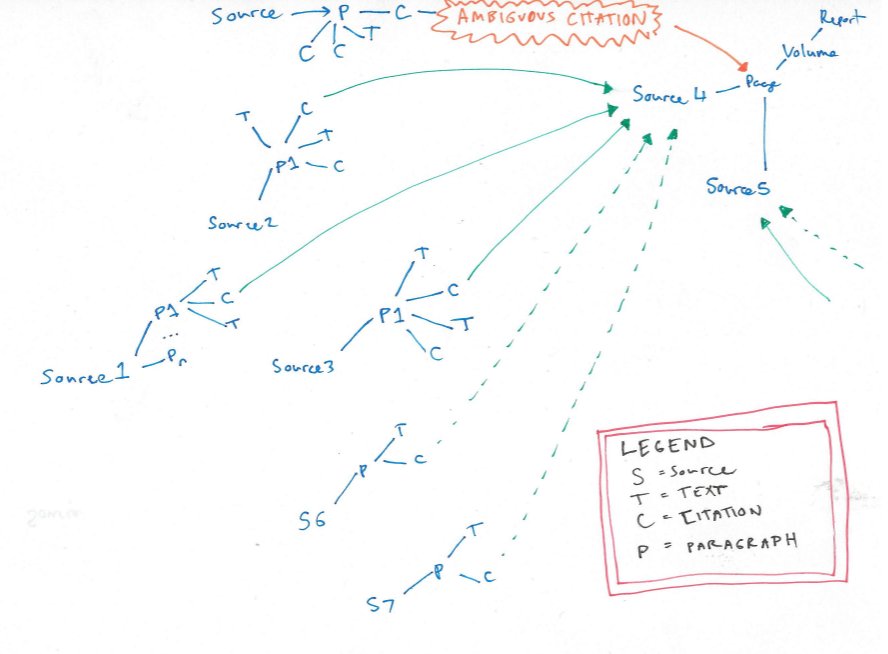 Source P C AMBIGUOUS CITATION
C C T
Report
Volume
Page
Source 4
T C
T
P1 C
Source2
Source5
T
P1 C
T
...
Pn
Source1
T
C
P1
T
C
Source3
T
P C
S6
T
P C
S7
LEGEND
S = Source
T = TEXT
C = CITATION
P = PARAGRAPH